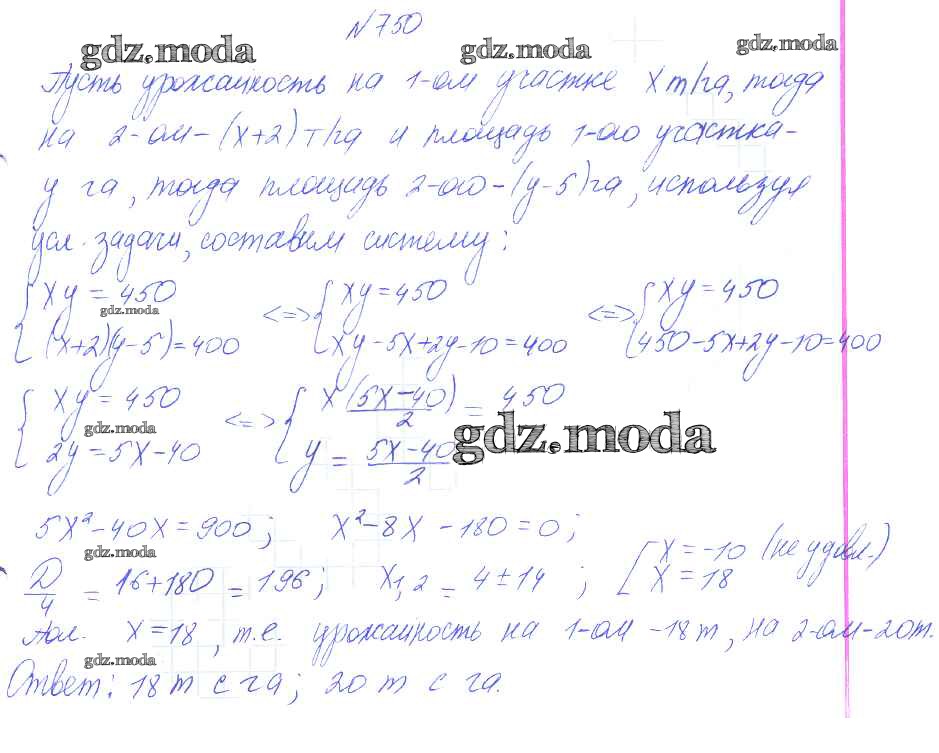 №750
gdz.moda gdz.moda gdz.moda
Пусть урожайность на 1-ом участке x т/га, тогда
на 2-ом – (x+2) т/га и площадь 1-ого участка –
y га, тогда площадь 2-ого – (y-5) га, используя
усл. задачи, составим систему:
{ xy = 450 <=> { xy = 450 <=> { xy = 450
gdz.moda
(x+2)(y-5) = 400 xy - 5x + 2y - 10 = 400 450 - 5x + 2y - 10 = 400
{ xy = 450 <=> { x (5x-40)/2 = 450
gdz.moda gdz.moda
2y = 5x - 40 y = (5x-40)/2
5x² - 40x = 900; x² - 8x - 180 = 0;
gdz.moda
D/4 = 16 + 180 = 196; x1,2 = 4 ± 14; [ x = -10 (не удовл.)
x = 18
Пол. x = 18, т.е. урожайность на 1-ом - 18 т, на 2-ом - 20 т.
gdz.moda
Ответ: 18 т с га; 20 т с га.